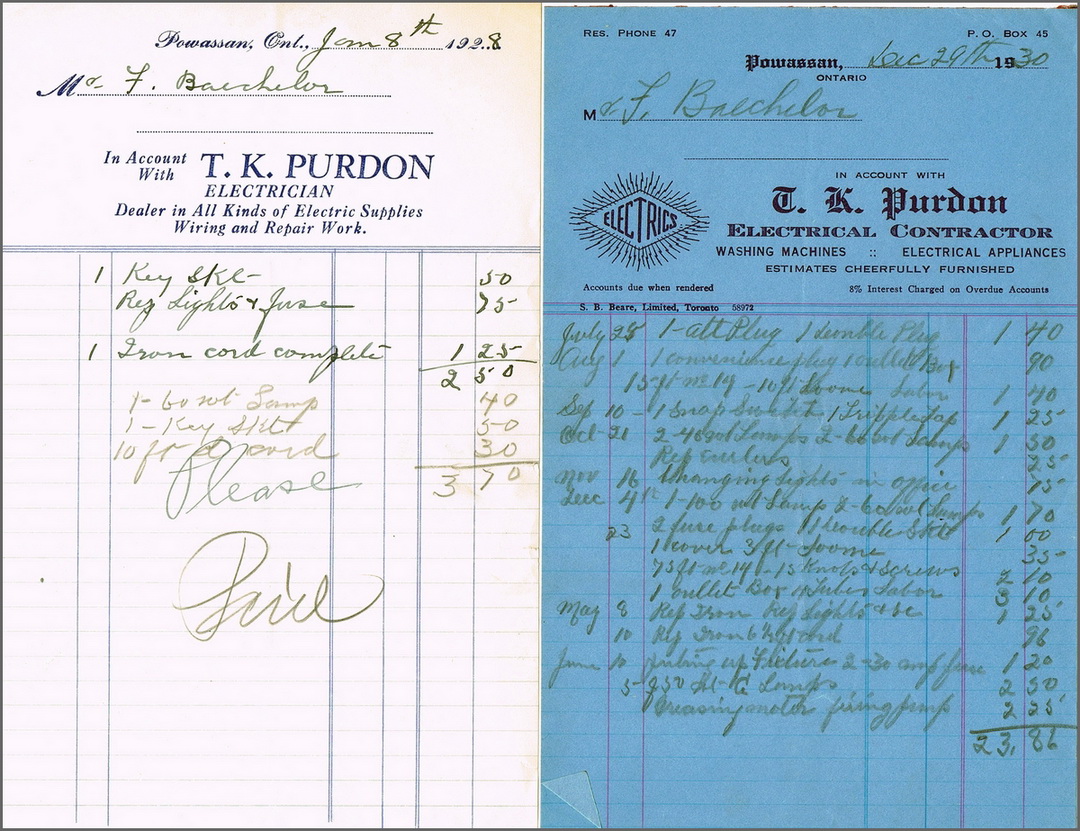 Powassan, Ont., Jan 8th 1928
Mr F. Baechelor
In Account With T. K. PURDON
ELECTRICIAN
Dealer in All Kinds of Electric Supplies
Wiring and Repair Work.
1 Key Skt 50
Rep Lights & fuse 75
1 Iron cord complete 1 25
2 50
1- 60 wt Lamp 40
1- Key Skt 50
10 ft cord 30
3 70
Please
RES. PHONE 47 P. O. BOX 45
Powassan, Dec 29th 1930
ONTARIO
Mr F. Baechelor
IN ACCOUNT WITH
ELECTRICS
T. K. Purdon
ELECTRICAL CONTRACTOR
WASHING MACHINES :: ELECTRICAL APPLIANCES
ESTIMATES CHEERFULLY FURNISHED
Accounts due when rendered 8% Interest Charged on Overdue Accounts
S. B. Beare, Limited, Toronto 58972
July 28 1- att Plug 1 double Plug 1 40
Aug 1 1 convenience plug 1 outlet Box 90
15 ft no 14 - 10 ft Loome Labor 1 40
Sep 10 - 1 Snap Switch 1 Tripple tap 1 25
Oct 21 2-40 wt Lamps 2-60 wt Lamps 1 50
Rep 25
Nov 16 changing Lights in office 75
Dec 4 1-100 wt Lamps 2-60 wt Lamps 1 70
23 2 fuse plugs 1 double Skt 1 00
1 cover 3 ft Loome 35
75 ft no 14 - 15 Knobs & Screws 2 10
1 outlet Box 4 Tubes Labor 3 10
May 8 Rep Iron Rep Lights & 1 25
10 Rep Iron 6 ft cord 96
June 10 puting up Fixture 2-30 amp fuse 1 20
5- Lamps 2 50
Greasing motor fixing pump 2 25
23.86